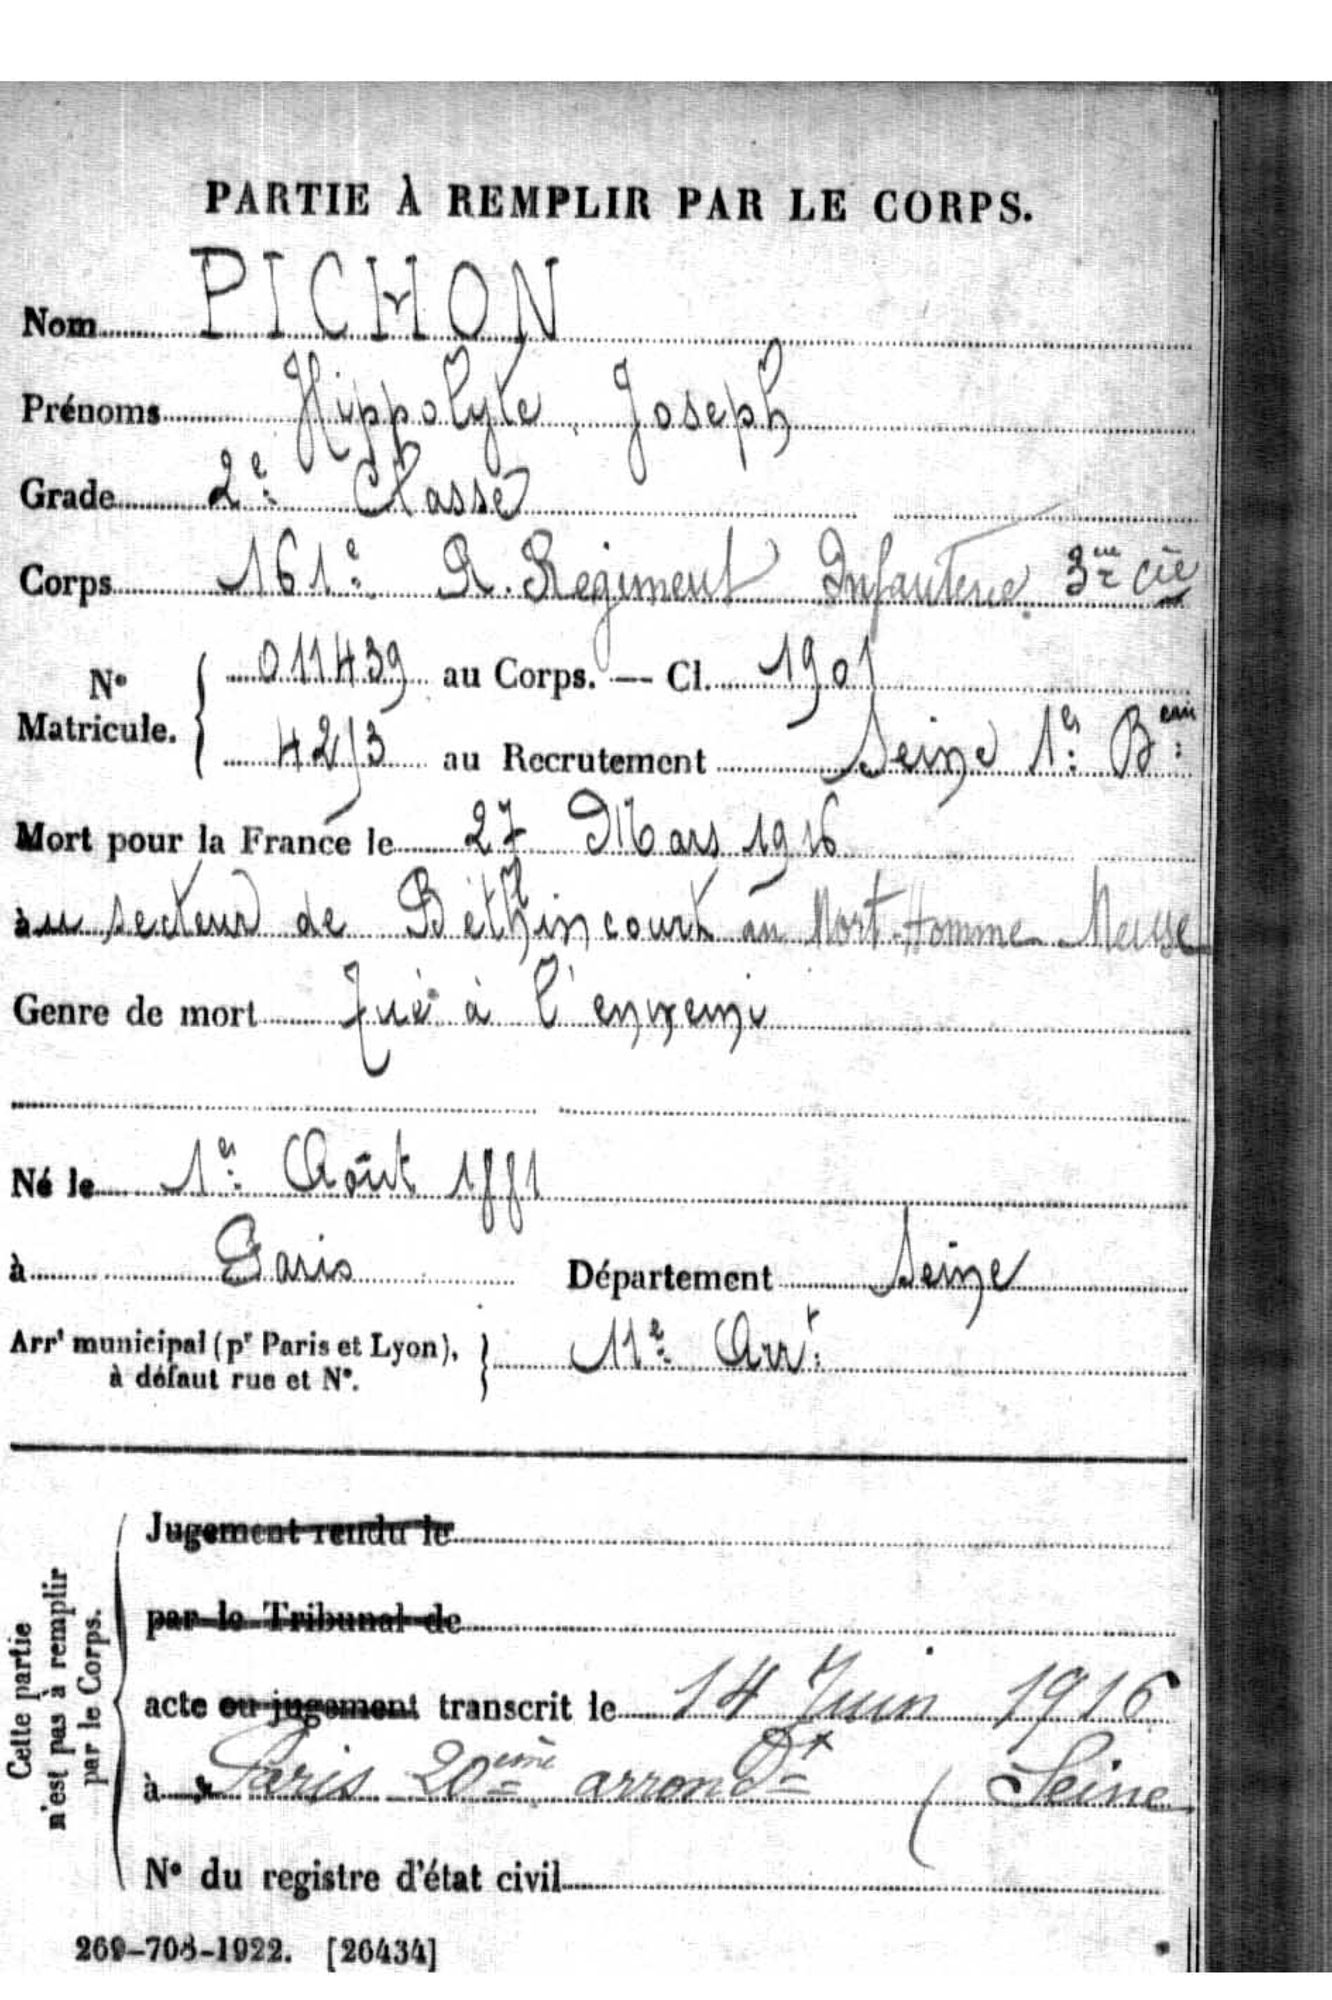 PARTIE À REMPLIR PAR LE CORPS.
Nom PICHON
Prénoms Hippolyte Joseph
Grade 2e Classe
Corps 161e R. Régiment Infanterie 3me Cie
No Matricule. { 011439 au Corps. — Cl. 1901
4213 au Recrutement Seine 1er Beau
Mort pour la France le 27 Mars 1916
au secteur de Béthincourt au Mort-Homme Meuse
Genre de mort Tué à l'ennemi
Né le 1er Août 1881
à Paris Département Seine
Arrt municipal (pr Paris et Lyon), } 11e Arrt
à défaut rue et No.
Cette partie
n'est pas à remplir
par le Corps.
Jugement rendu le
par le Tribunal de
acte ou jugement transcrit le 14 Juin 1916
à Paris 20ème arrondt (Seine
No du registre d'état civil
269-708-1922. [26434]